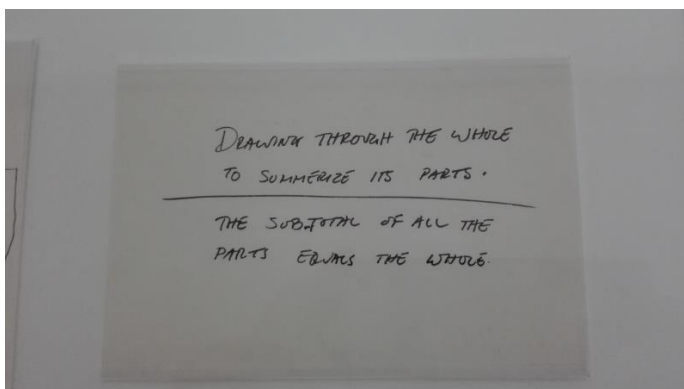 DRAWING THROUGH THE WHOLE
TO SUMMERIZE ITS PARTS.
THE SUBTOTAL OF ALL THE
PARTS EQUALS THE WHOLE.